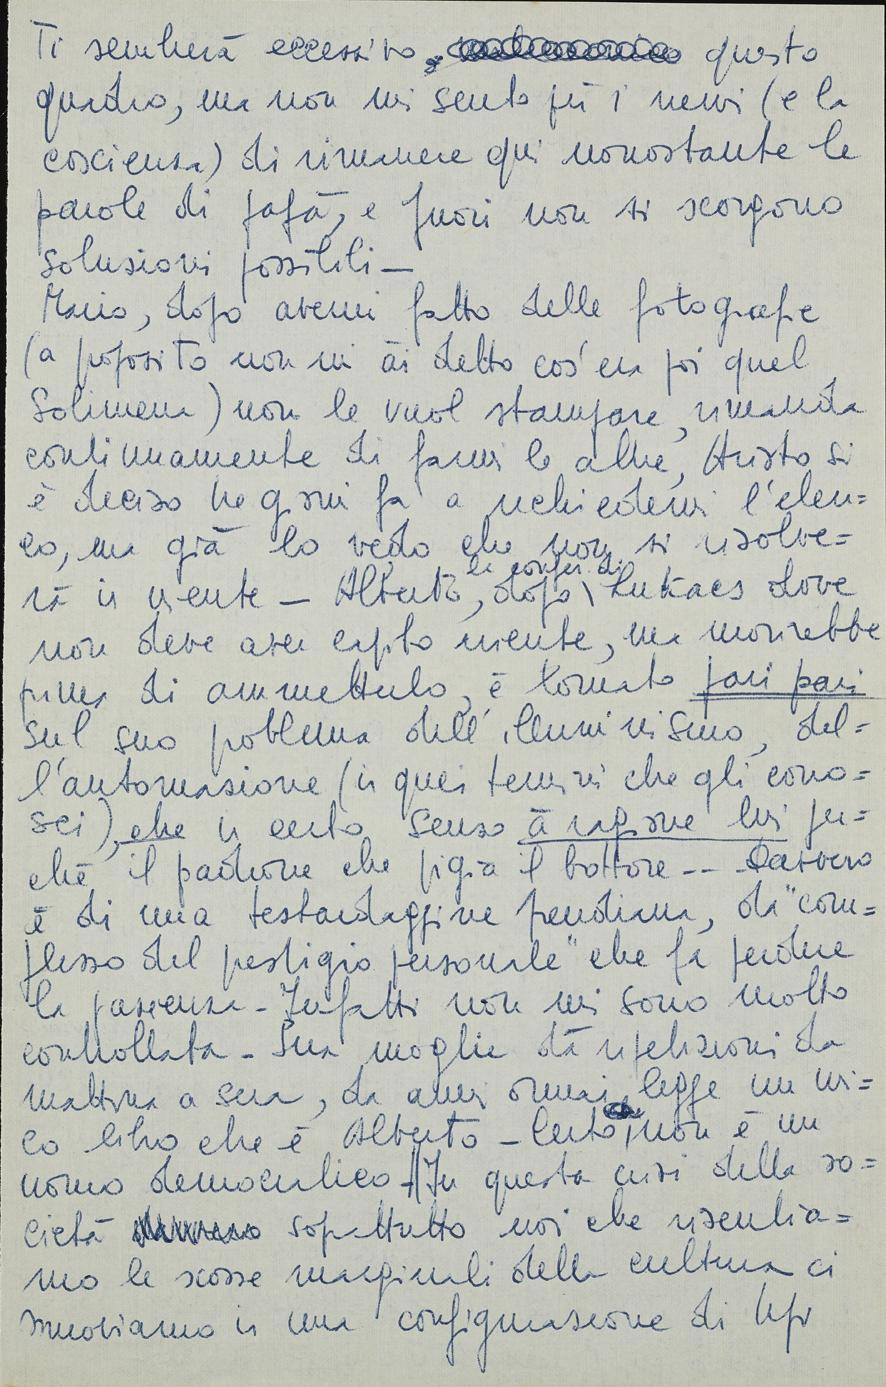 Ti sembrerà eccessivo questo
quadro, ma non mi sento più i nervi (e la
coscienza) di rimanere qui nonostante le
parole di fafà, e fuori non si scorgono
soluzioni possibili —
Mario, dopo avermi fatto delle fotografie
(a proposito non mi ài detto cos'era poi quel
Solimena) non le vuol stampare, rimanda
continuamente di farmi le altre, Aristo si
è deciso tre giorni fa a richiedermi l'elen=
co, ma già lo vedo che non si risolve=
rà in niente — Alberto, dopo la confer. di Lukacs dove
non deve aver capito niente, ma morirebbe
prima di ammetterlo, è tornato pari pari
sul suo problema dell'illuminismo, del=
l'automazione (in quei termini che gli cono=
sci), che in certo senso à ragione lui per=
chè il padrone che pigia il bottone -- Davvero
è di una testardaggine freudiana, da "com=
plesso del prestigio personale" che fa perdere
la pazienza - Infatti non mi sono molto
controllata - Sua moglie dà ripetizioni da
mattina a sera, da anni ormai legge un uni=
co libro che è Alberto - Certo, non è un
uomo democratico - || In questa crisi della so=
cietà soprattutto noi che risentia=
mo le scosse marginali della cultura ci
muoviamo in una configurazione di tipo